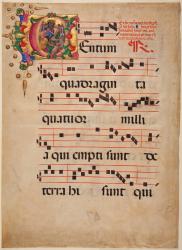 Centum
quadragin ta
quatuor milli
a qui empti sunt de
terra hi sunt qui